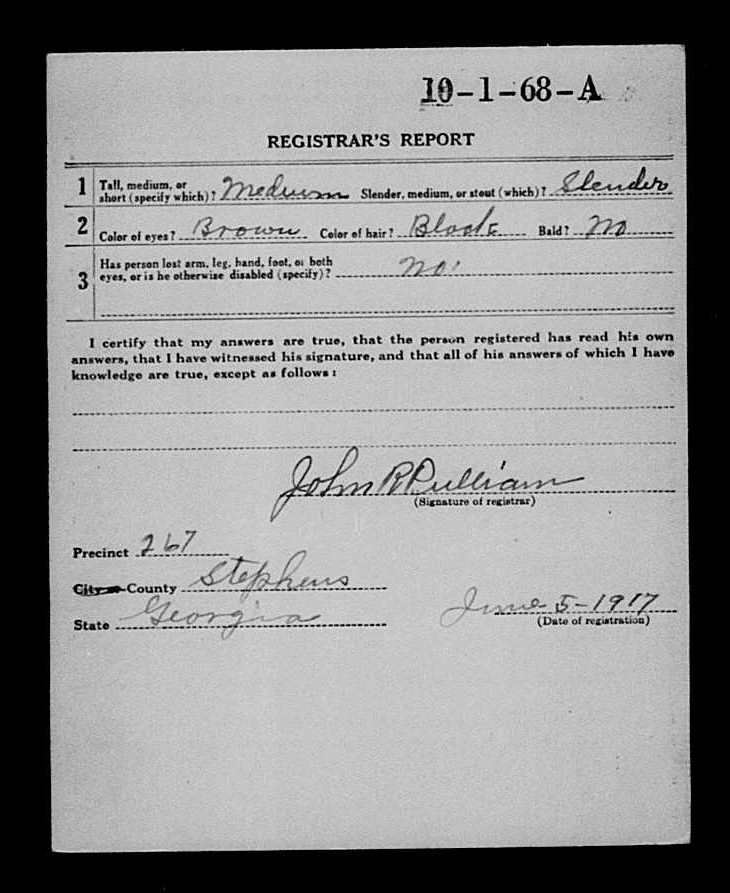 10-1-68-A
REGISTRAR'S REPORT
1 Tall, medium, or short (specify which)? Medium Slender, medium, or stout (which)? Slender
2 Color of eyes? Brown Color of hair? Black Bald? No
3 Has person lost arm, leg, hand, foot, or both
eyes, or is he otherwise disabled (specify)? No
I certify that my answers are true, that the person registered has read his own
answers, that I have witnessed his signature, and that all of his answers of which I have
knowledge are true, except as follows:
John R Pulliam
(Signature of registrar)
Precinct 267
City or County Stephens
State Georgia June 5-1917
(Date of registration)